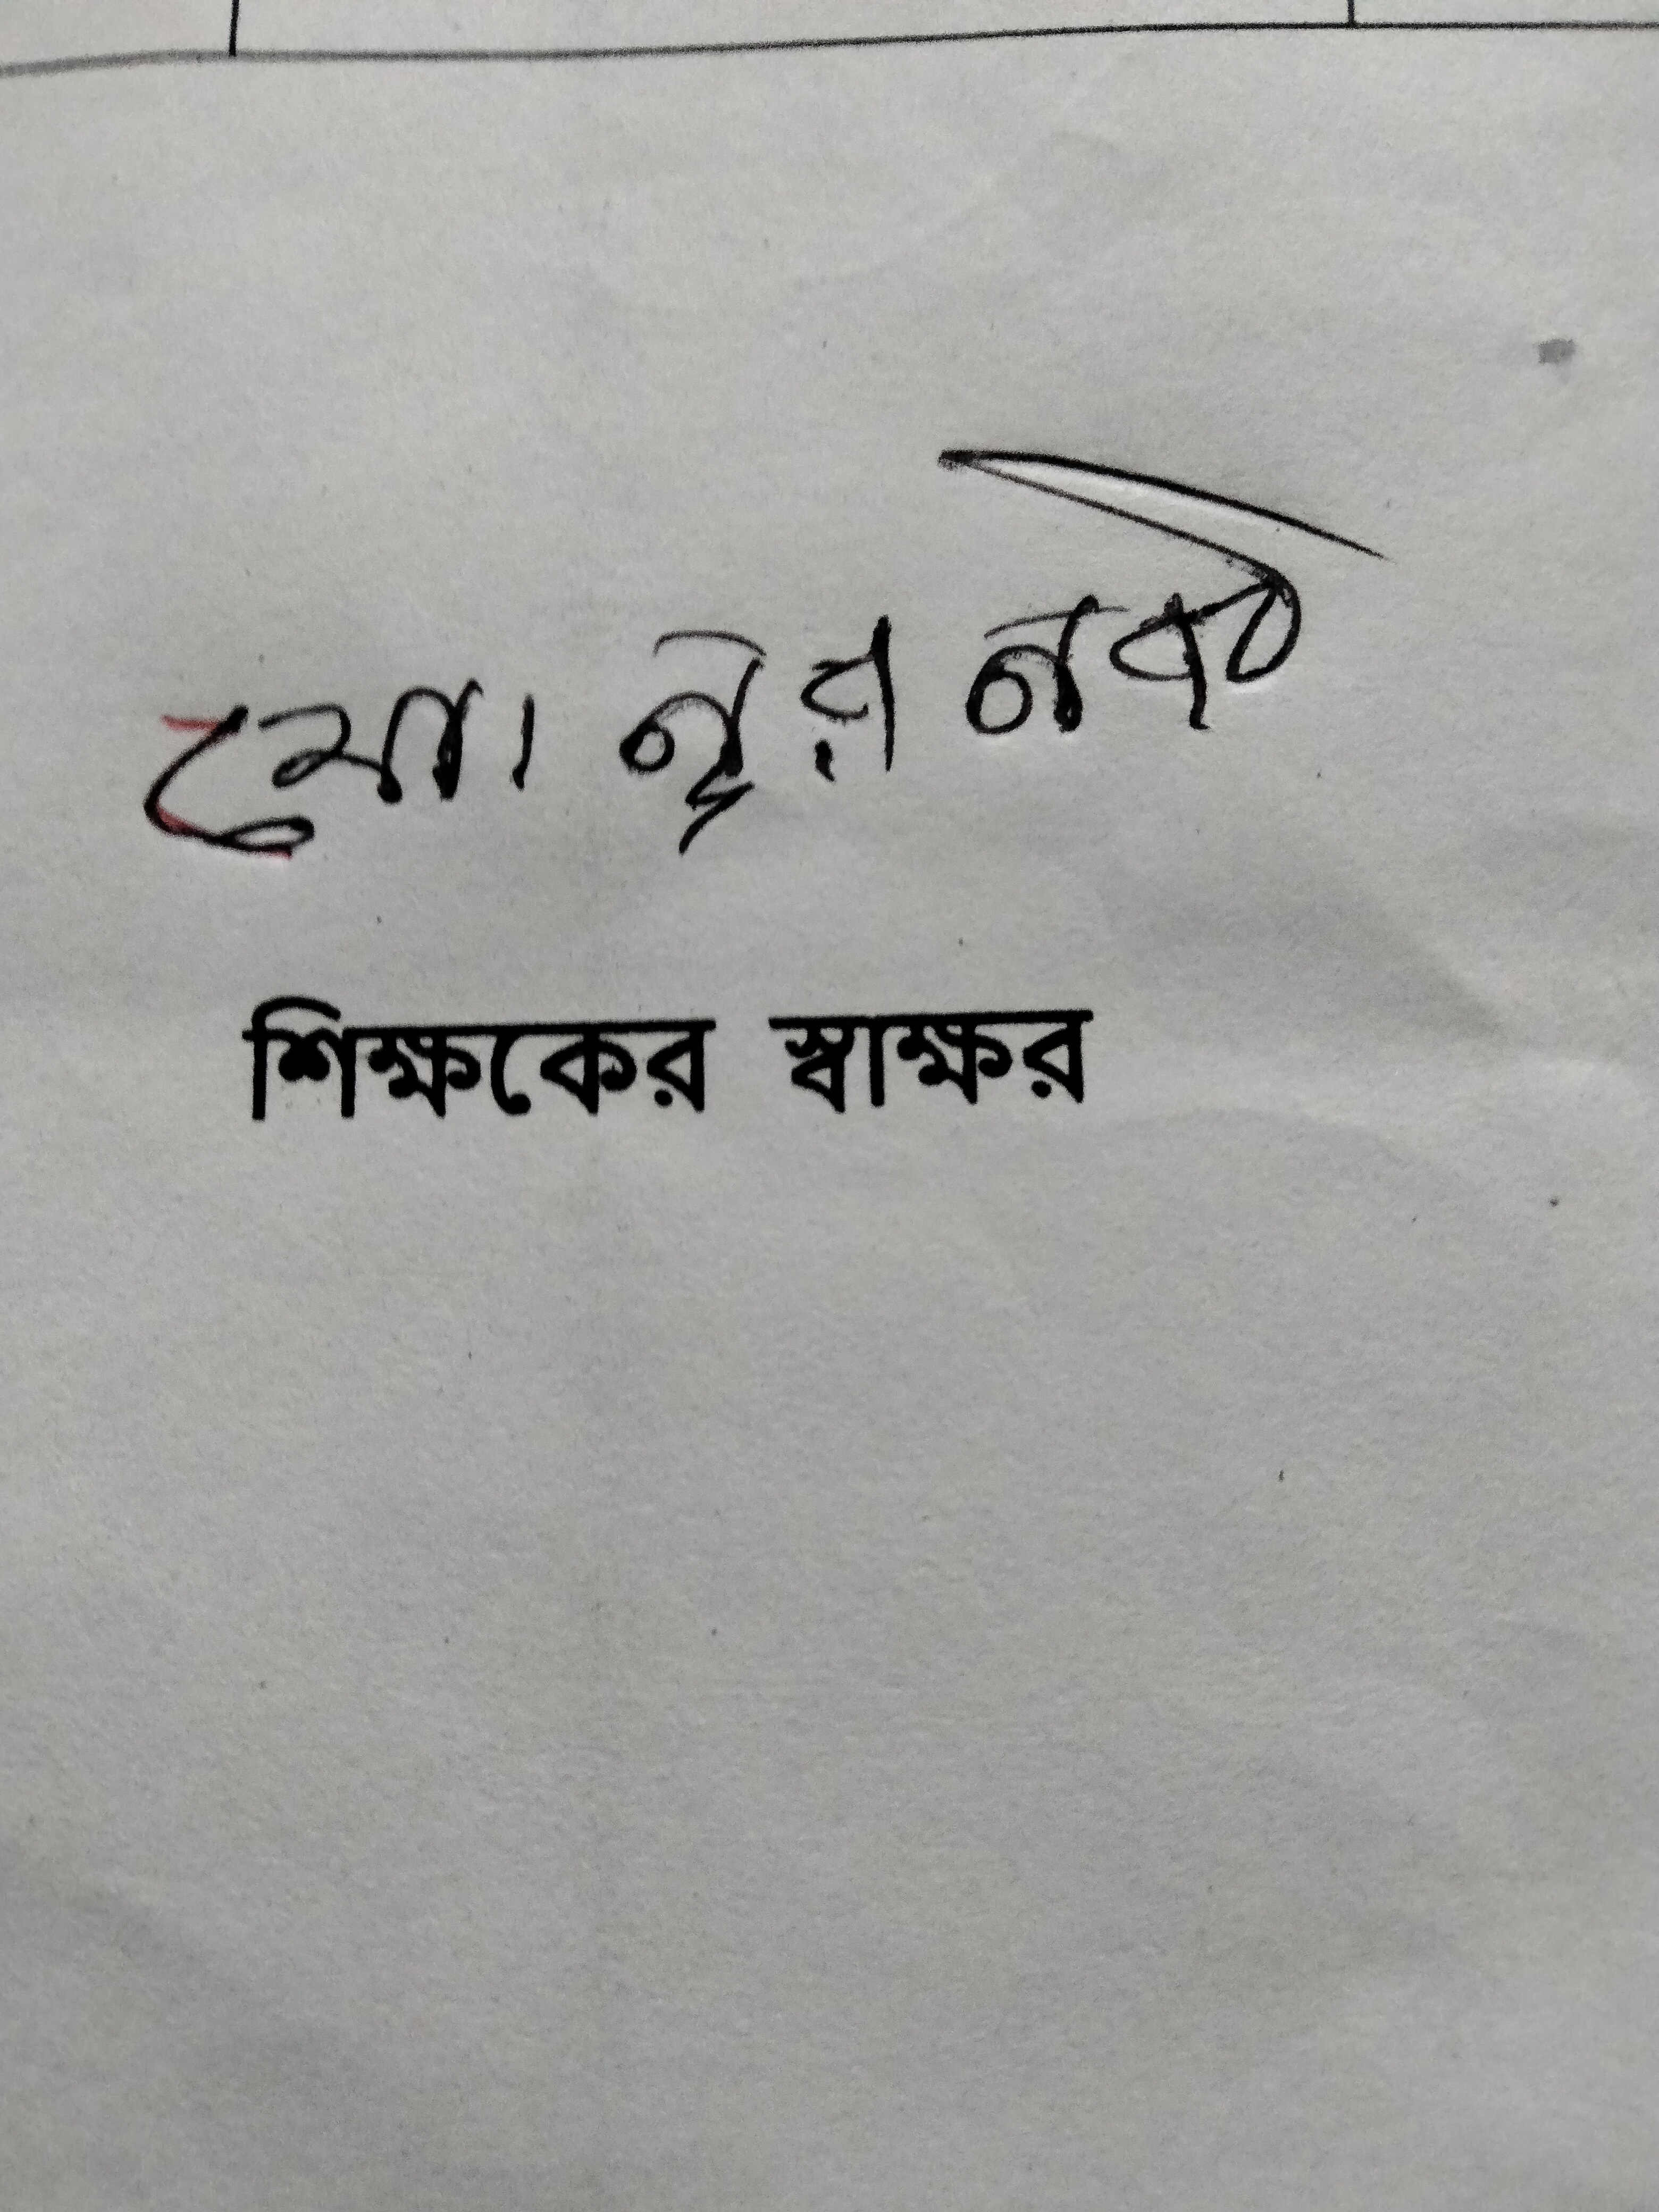 মো। নূর নবী
শিক্ষকের স্বাক্ষর